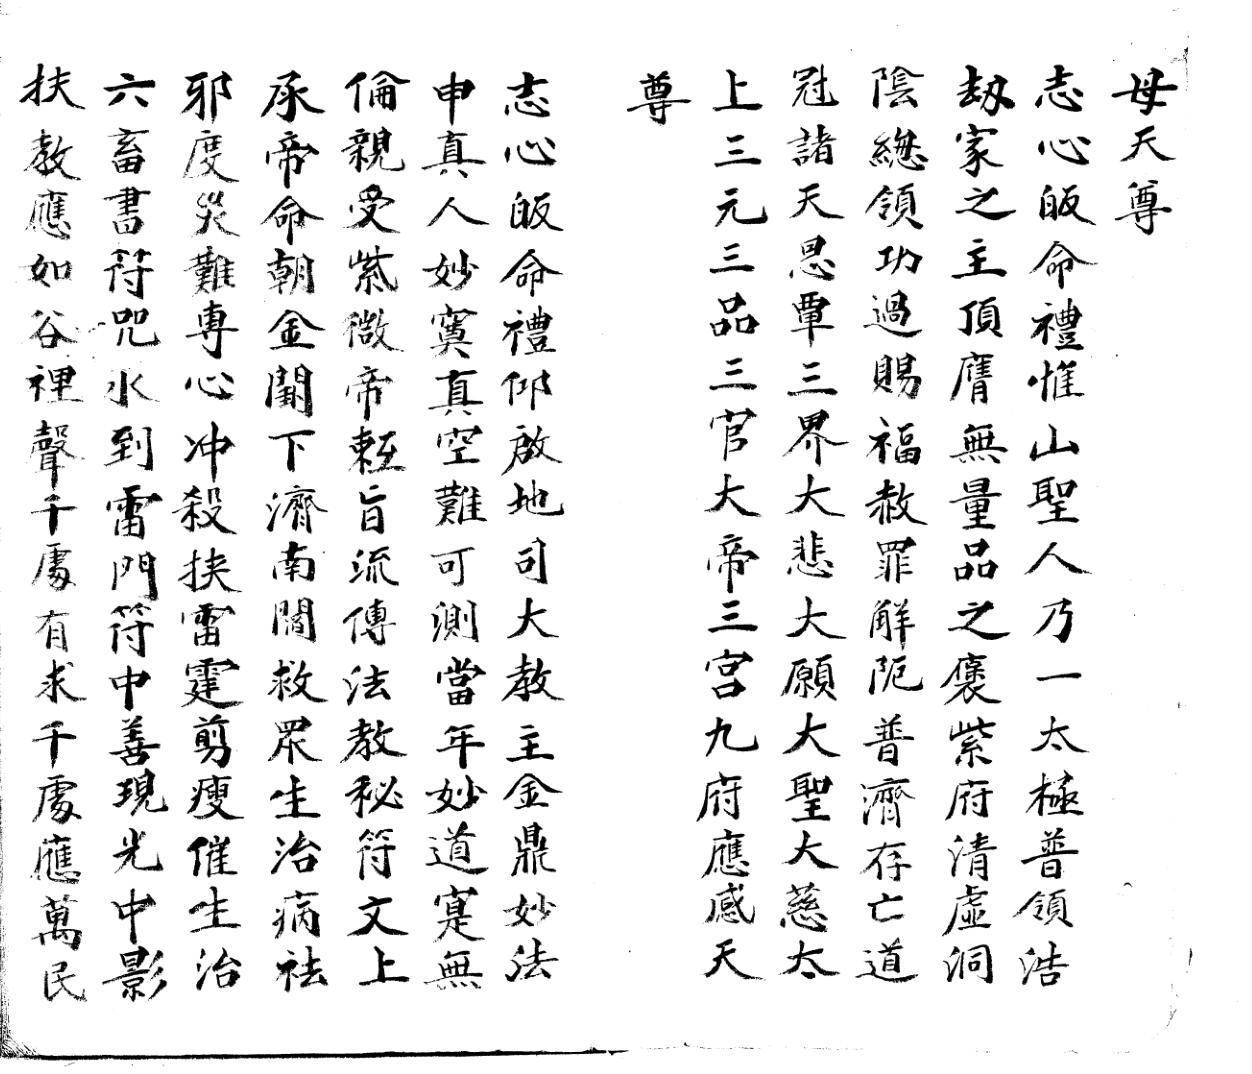 母天尊
志心皈命禮惟山聖人乃一太極普領浩
劫家之主頂膺無量品之褒紫府清虛洞
陰總領功過賜福赦罪解厄普濟存亡道
冠諸天恩覃三界大悲大願大聖大慈太
上三元三品三官大帝三宮九府應感天
尊
志心皈命禮仰啟地司大教主金鼎妙法
申真人妙寞真空難可測當年妙道寔無
倫親受紫微帝敕旨流傳法教秘符文上
承帝命朝金闕下濟南閻救眾生治病祛
邪度災難專心冲殺挾雷霆剪瘦催生治
六畜書符咒水到雷門符中善現光中影
扶教應如谷裡聲千處有求千處應萬民